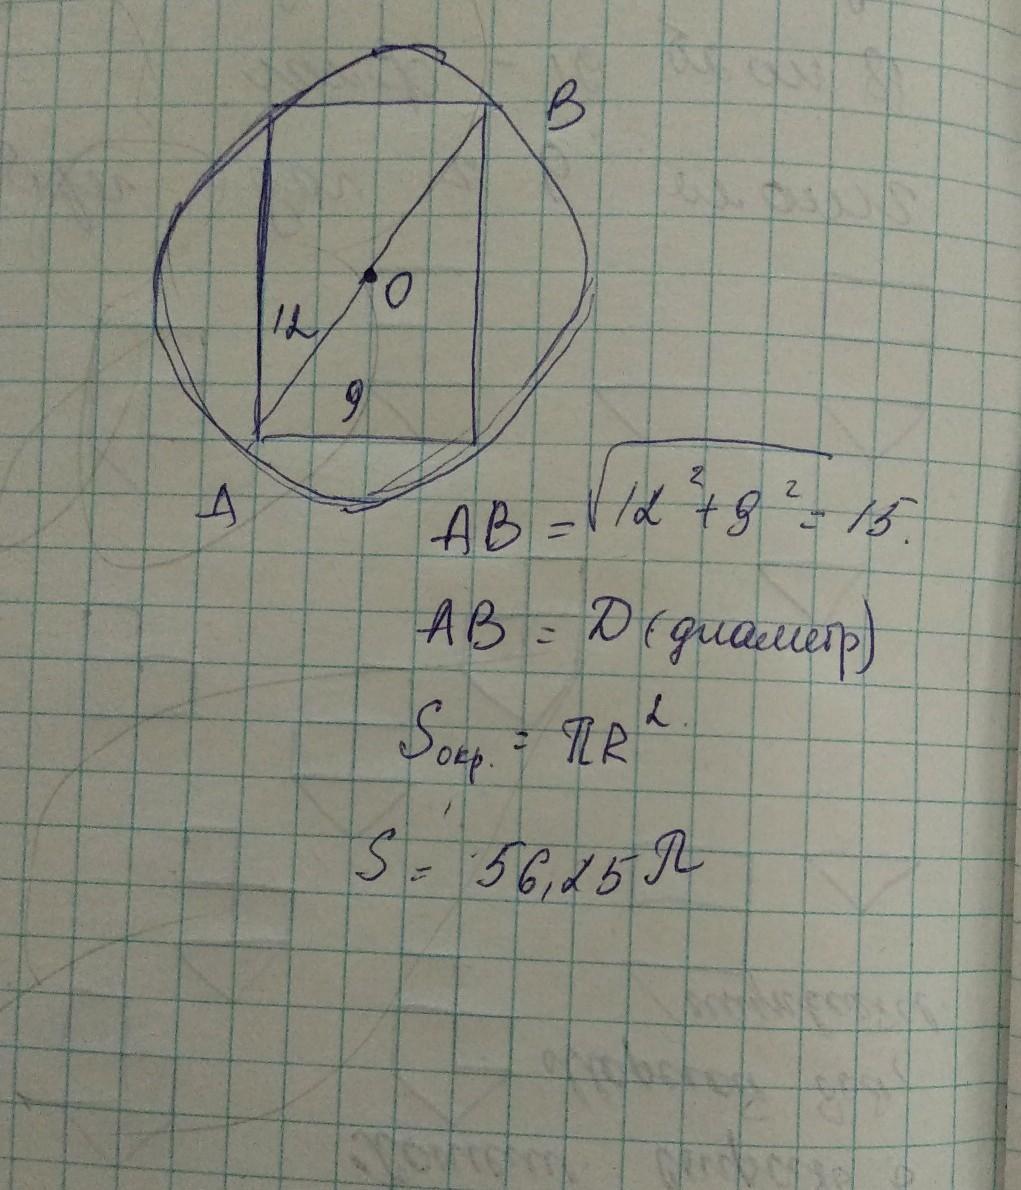 B
O
12
9
A
AB = √12² + 9² = 15.
AB = D (диаметр)
Sокр. = πR².
S = 56,25 π